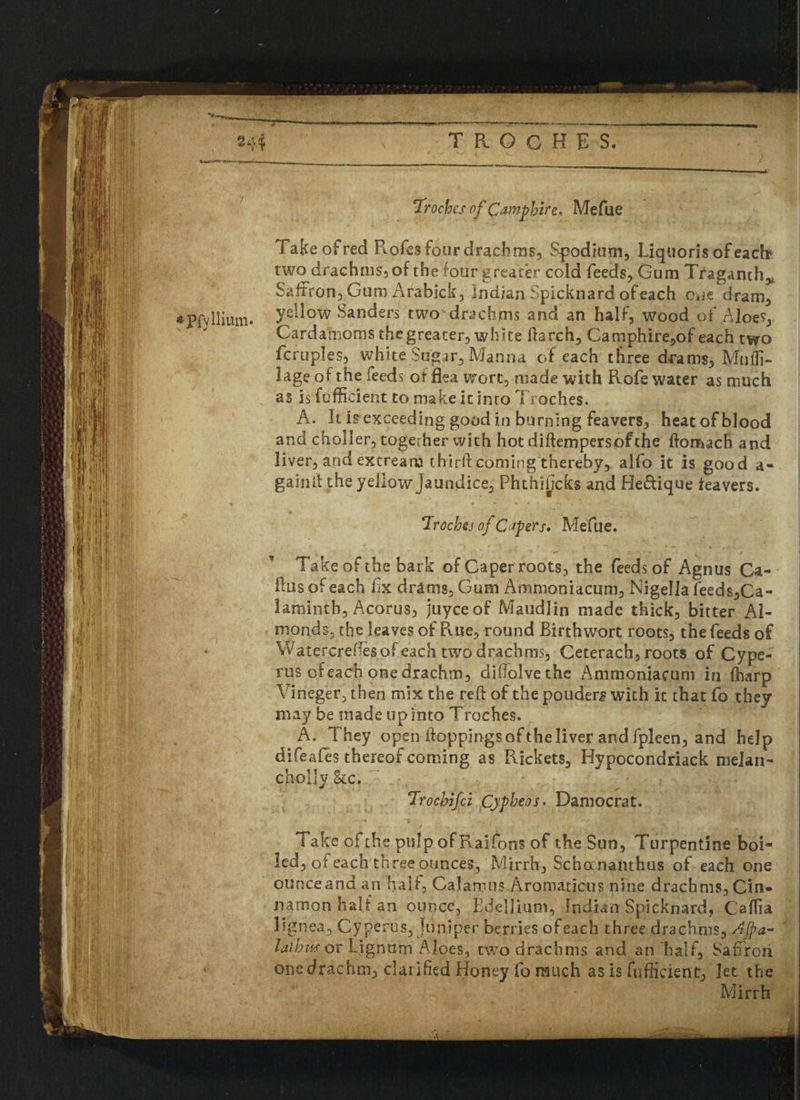 244 TROCHES.
Troches of Camphire. Mesue
Take of red Roses four drachms, Spodium, Liquoris of each
two drachms, of the four greater cold seeds, Gum Traganth,
Saffron, Gum Arabick, Indian Spicknard of each one dram,
*Psyllium. yellow Sanders two drachms and an half, wood of Aloes,
Cardamoms the greater, white starch, Camphire, of each two
scruples, white Sugar, Manna of each three drams, Mussi-
lage of the seeds of flea wort, made with Rose water as much
as is sufficient to make it into Troches.
A. It is exceeding good in burning feavers, heat of blood
and choller, together with hot distempers of the stomach and
liver, and extream thirst coming thereby, also it is good a-
gainst the yellow Jaundice, Phthisicks and Hectique feavers.
Troches of Capers. Mesue.
Take of the bark of Caper roots, the seeds of Agnus Ca-
stus of each six drams, Gum Ammoniacum, Nigella seeds, Ca-
laminth, Acorus, juyce of Maudlin made thick, bitter Al-
monds, the leaves of Rue, round Birthwort roots, the seeds of
Watercresses of each two drachms, Ceterach, roots of Cype-
rus of each one drachm, dissolve the Ammoniacum in sharp
Vineger, then mix the rest of the pouders with it that so they
may be made up into Troches.
A. They open stoppings of the liver and spleen, and help
diseases thereof coming as Rickets, Hypocondriack melan-
cholly &c.
Trochisci Cypheos. Damocrat.
Take of the pulp of Raisons of the Sun, Turpentine boi-
led, of each three ounces, Mirrh, Schœnanthus of each one
ounce and an half, Calamus Aromaticus nine drachms, Cin-
namon half an ounce, Bdellium, Indian Spicknard, Cassia
lignea, Cyperus, Juniper berries of each three drachms, Aspa-
lathus or Lignum Aloes, two drachms and an half, Saffron
one drachm, clarified Honey so much as is sufficient, let the
Mirrh